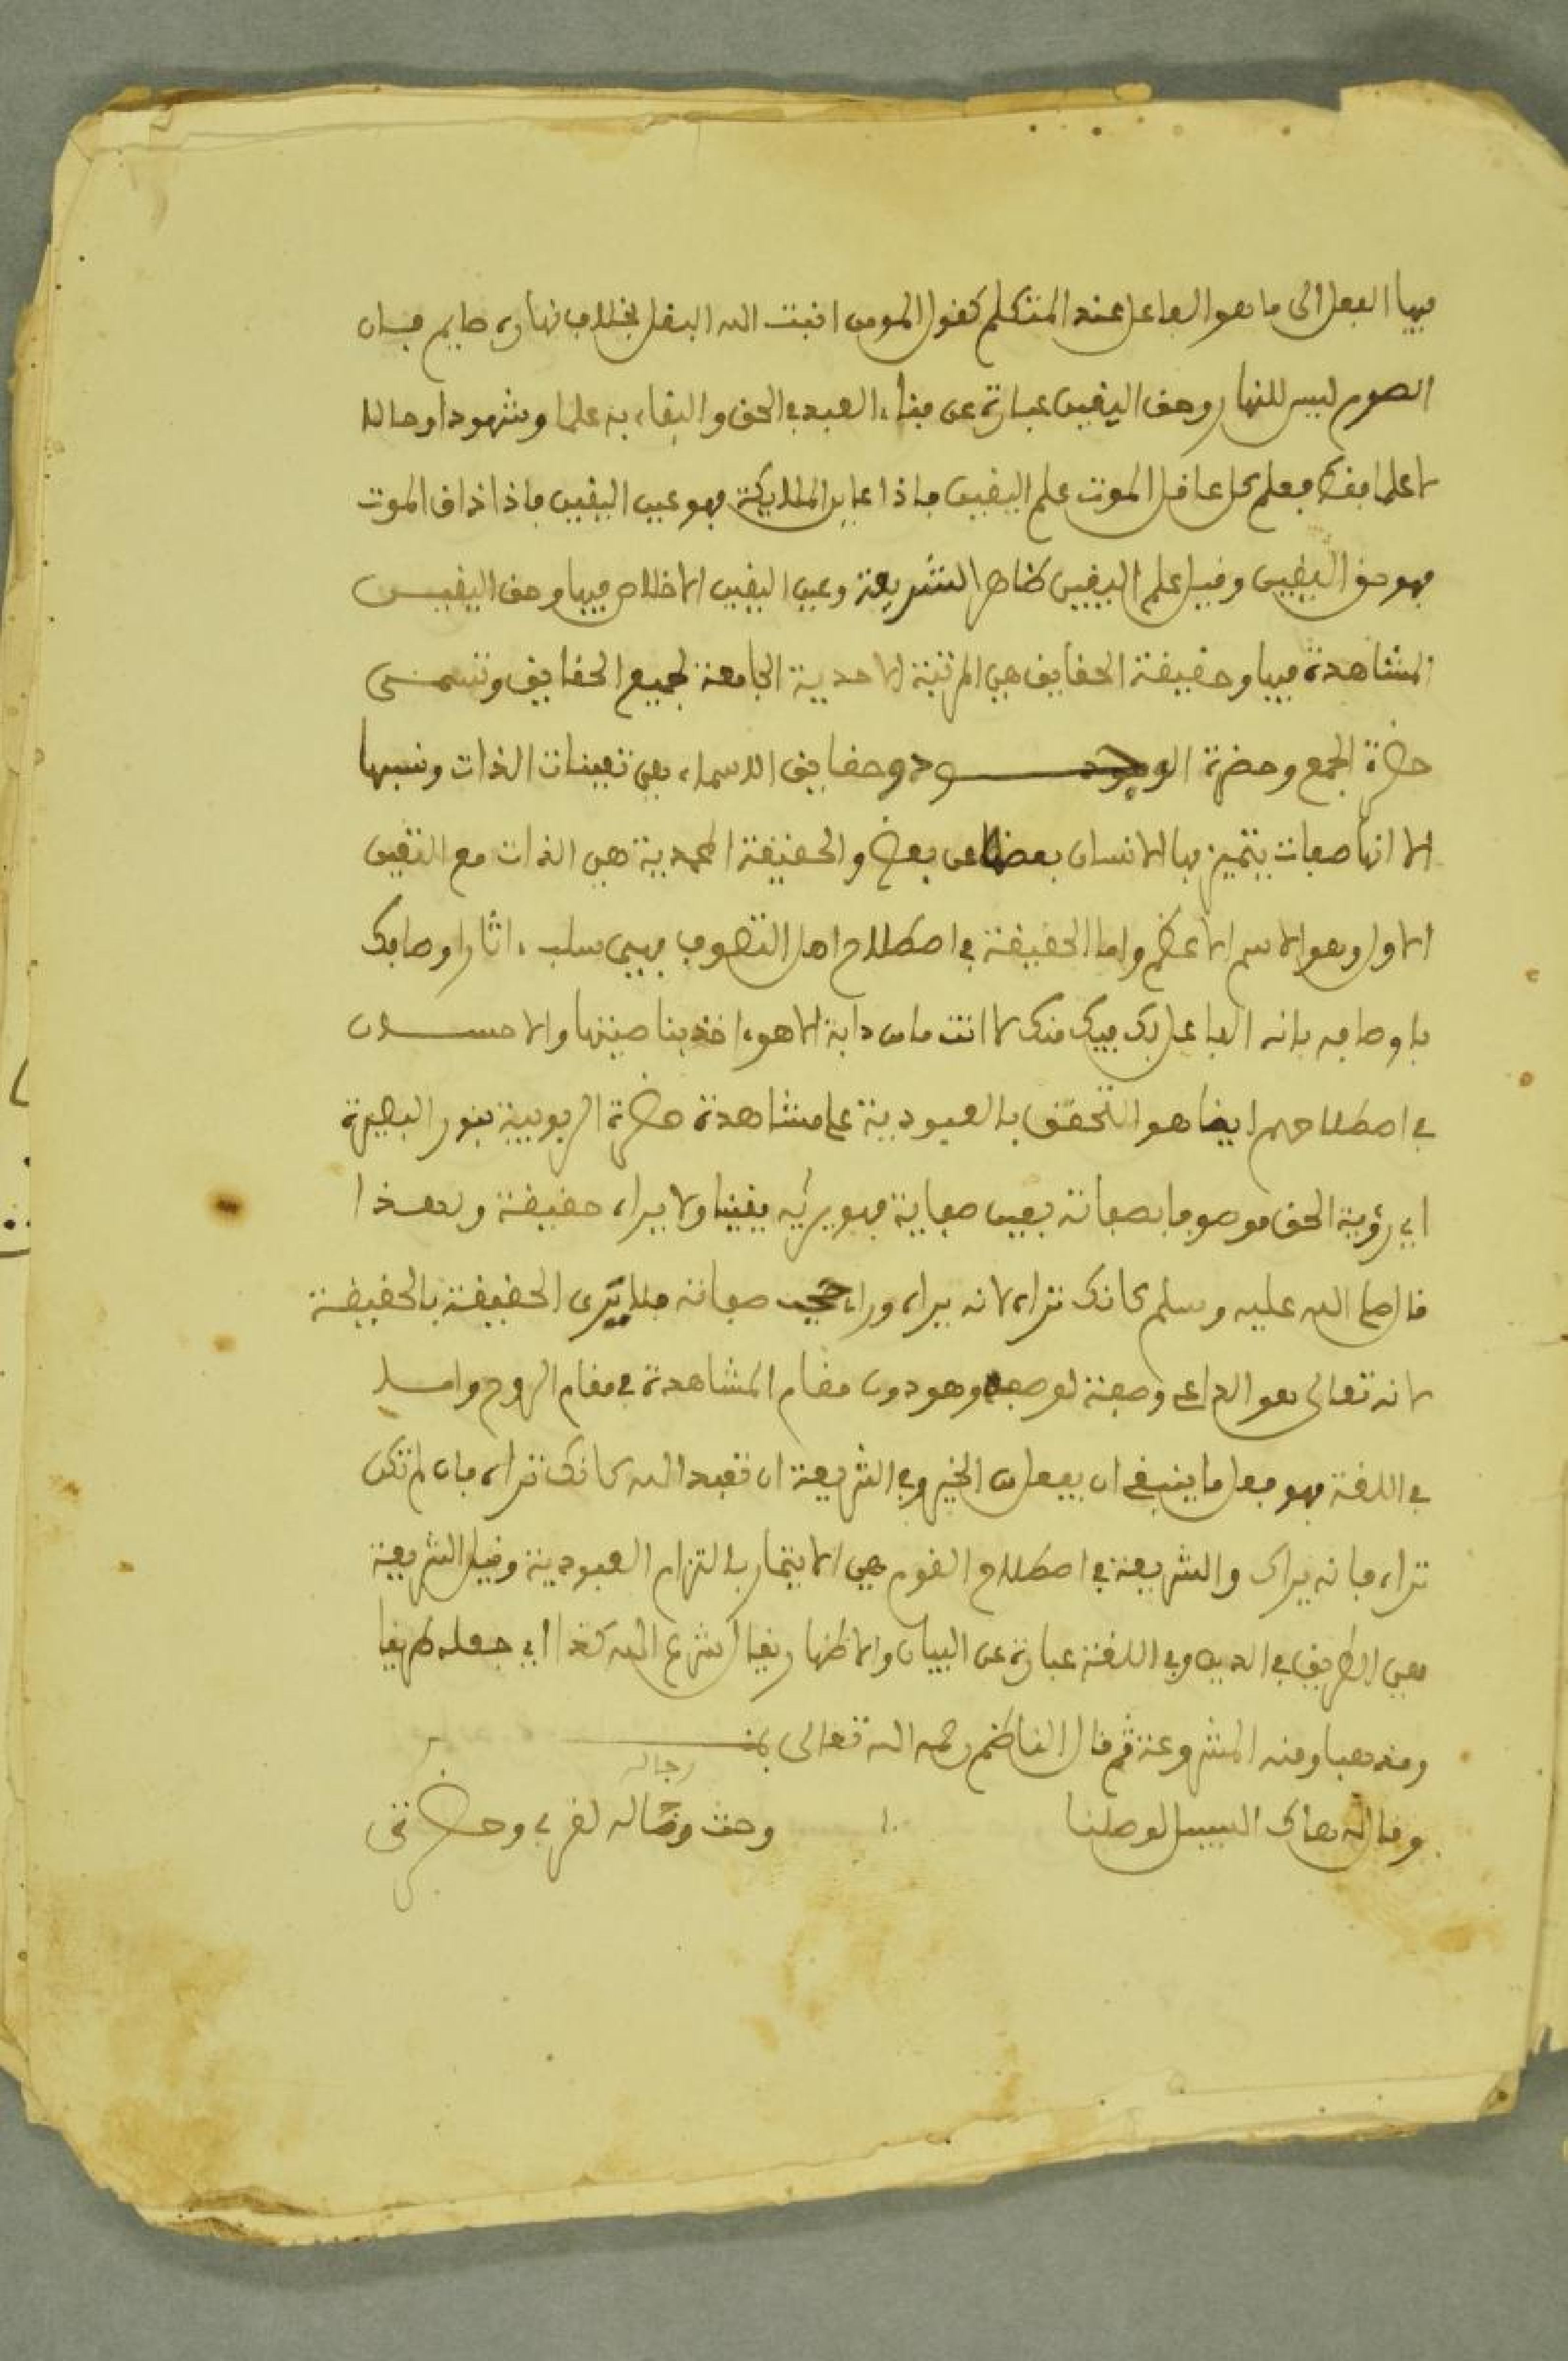 فيها الفعل الى ما هو الفاعل عند المتكلم كقول المومن انبت الله البقل بخلاف نهاره صايم فان
الصوم ليس للنهار وحق اليقين عبارة عن فناء العبد في الحق والبقاء به علما وشهودا وحالا
لا علما فقط فعلم كل عاقل الموت علم اليقين فاذا عاين الملايكة فهو عين اليقين فاذا ذاق الموت
فهو حق اليقين وقيل علم اليقين ظاهر الشريعة وعين اليقين الاخلاص فيها وحق اليقين
المشاهدة فيها وحقيقة الحقايق هي المرتبة الاحدية الجامعة لجميع الحقايق وتسمى
حضرة الجمع وحضرة الوجود وحقايق الاسماء هي تعينات الذات ونسبها
الا انها صفات يتميز بها الانسان بعضها عن بعض والحقيقة المحمدية هي الذات مع التعين
الاول وهو الاسم الاعظم واما الحقيقة في اصطلاح اهل التصوف فهي سلب ءاثار اوصافك
باوصافه بانه الفاعل بك فيك منك لا انت ما من دابة الا هو ءاخذ بناصيتها والاحسان
في اصطلاحهم ايضا هو التحقق بالعبودية على مشاهدة حضرة الربوبية بنور البصيرة
اي رؤية الحق موصوفا بصفاته بعين صفاته فهو يريه يقينا ولا يراه حقيقة ولهذا
قال صلى الله عليه وسلم كانك تراه لانه يراه وراء حجب صفاته فلا يرى الحقيقة بالحقيقة
لانه تعالى هو الداعي وصفه لوصفه وهو دون مقام المشاهدة في مقام الروح واما
في اللغة فهو فعل ما ينبغي ان يفعل من الخير وفي الشريعة ان تعبد الله كانك تراه فان لم تكن
تراه فانه يراك والشريعة في اصطلاح القوم هي الايتمار بالتزام العبودية وقيل الشريعة
هي الطريق في الدين وفي اللغة عبارة عن البيان والاظهار يقال شرع الله كذا اي جعله طريقا
ومذهبا ومنه المشروعة ثم قال الناظم رحمه الله تعالى
رجاله
وقال هاك السبيل لوصلنا ١٠ وحث لقربي وحضرتي